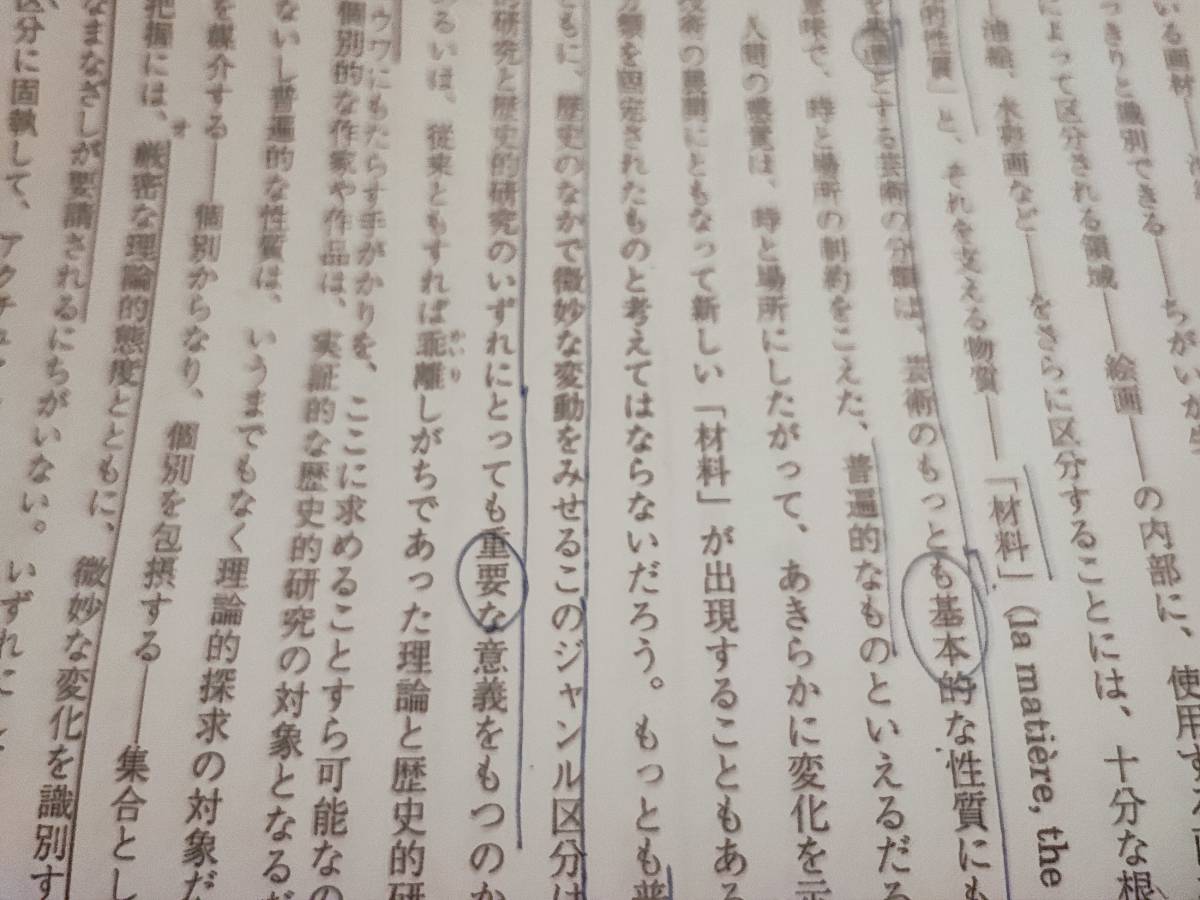 いる画材
っきりと識別できる――ちがいが
によって区分される領域――絵画――の内部に、使用す
油絵、水彩画など――をさらに区分することには、十分な根
的性質」と、それを支える物質――「材料」(la matière, the
とする芸術の分類は、芸術のもっとも基本的な性質にも
意味で、時と場所の制約をこえた、普遍的なものといえるだろ
人間の感覚は、時と場所にしたがって、あきらかに変化を示
技術の展開にともなって新しい「材料」が出現することもある
分類を固定されたものと考えてはならないだろう。もっとも普
ともに、歴史のなかで微妙な変動をみせるこのジャンル区分は
的研究と歴史的研究のいずれにとっても重要な意義をもつのか
るいは、従来ともすれば乖離しがちであった理論と歴史的研
ウワにもたらす手がかりを、ここに求めることすら可能なの
個別的な作家や作品は、実証的な歴史的研究の対象となるだ
ないし普遍的な性質は、いうまでもなく理論的探求の対象だ
を媒介する――個別からなり、個別を包摂する――集合とし
把握には、厳密な理論的態度とともに、微妙な変化を識別す
なまなざしが要請されるにちがいない。いずれに
区分に固執して、